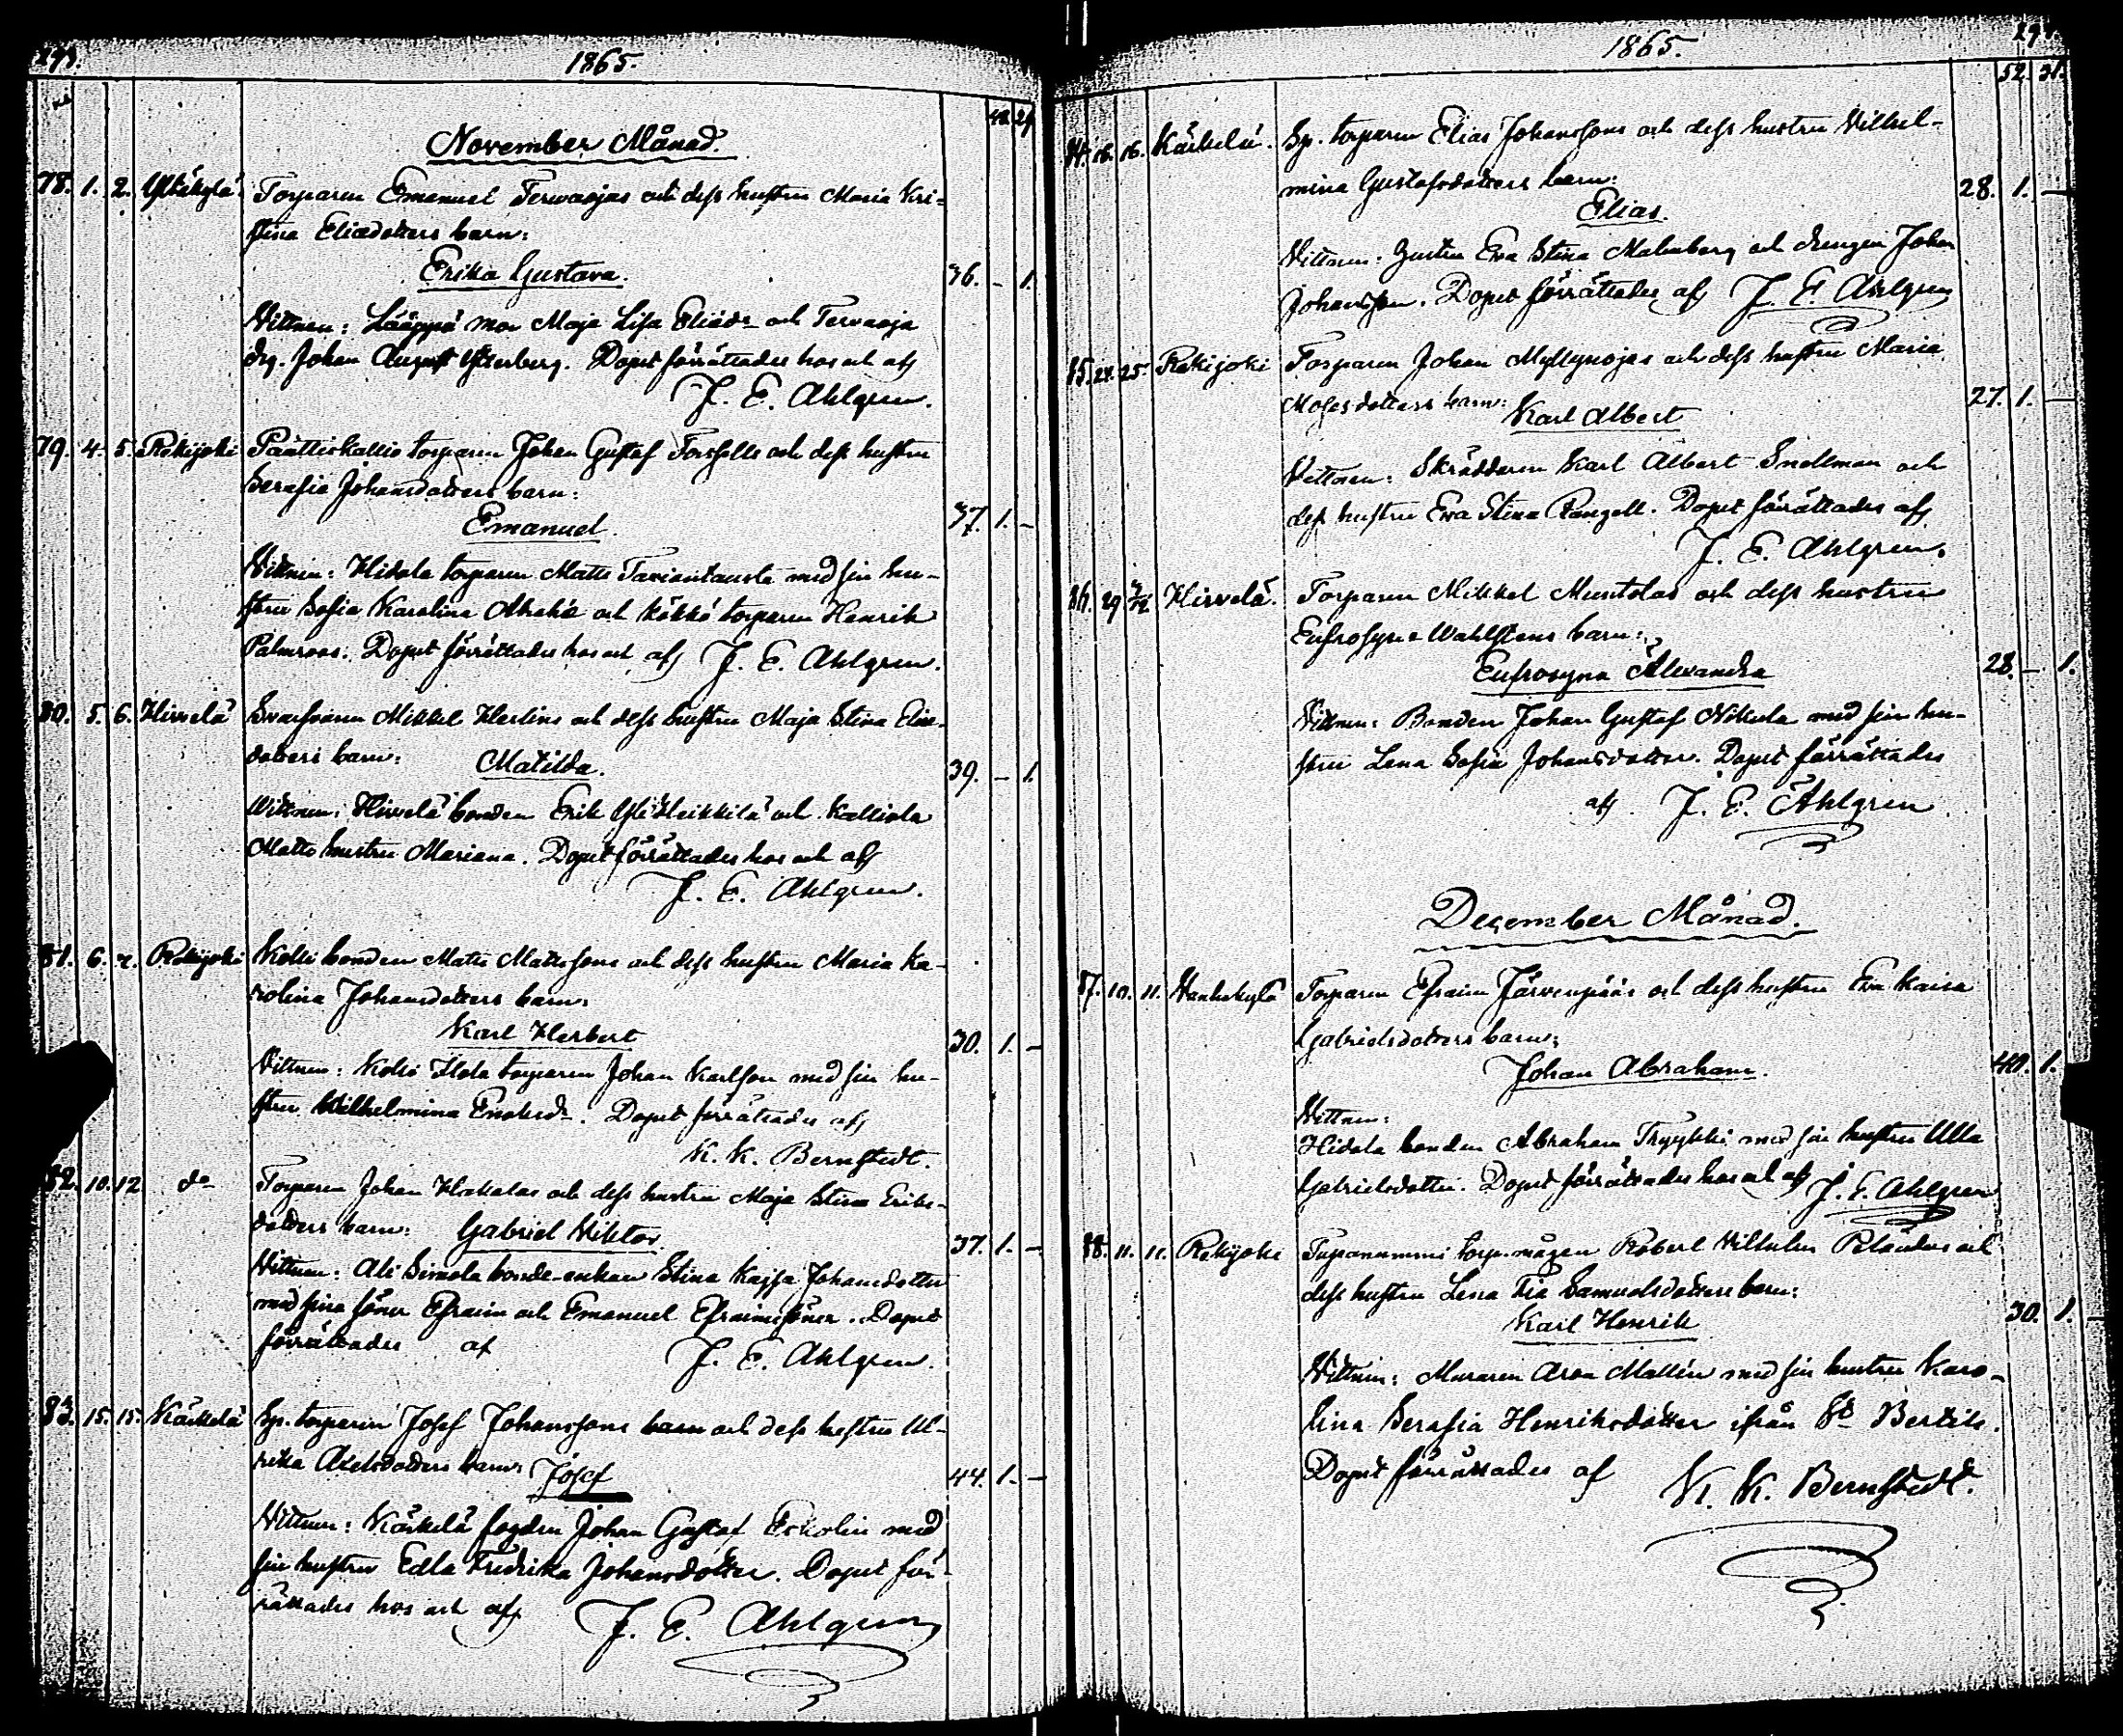 1865.
48 29
November Månad.
78. 1. 2. Yltäkylä. Torparen Emanuel Terwaojas och dess hustru Maria Kri-
stina Eliædotters barn:
Erika Gustava. 36. – 1.
Vittnen: Lääppä mor Maja Lisa Eliædr och Terwaoja
drg. Johan August Österberg. Dopet förrättades hos och af
J. E. Ahlgren.
79. 4. 5. Rekijoki Päättiskallio torparen Johan Gustaf Forssells och dess hustru
Serafia Johansdotters barn:
Emanuel. 37. 1. –
Vittnen: Hidola torparen Matts Tarviantausta med sin hu-
stru Sofia Karolina och Kökkö torparen Henrik
Palmroos. Dopet förrättades hos och af J. E. Ahlgren.
80. 5. 6. Hirvelä Svarfvaren Mikkel Herlins och dess hustru Maja Stina Eliæ-
dotters barn: Matilda. 39. – 1.
Wittnen: Hirvelä bonden Erik Yli Heikkilä och Kalliola
Matts hustru Mariana. Dopet förrättades hos och af
J. E. Ahlgren.
81. 6. 7. Rekijoki Kolli bonden Matts Mattssons och dess hustru Maria Ka-
rolina Johansdotters barn:
Karl Herbert 30. 1. –
Vittnen: Kolli Ilola torparen Johan Karlsson med sin hu-
stru Wilhelmina Enoksdr. Dopet förrättades af
K. K. Bernstedt.
82. 10. 12. do Torparen Johan Hakalas och dess hustru Maja Stina Eriks-
dotters barn: Gabriel Viktor. 37. 1. –
Vittnen: Ali Simola bonde-enkan Stina Kajsa Johansdotter
med sina söner Efraim och Emanuel Efraimssöner. Dopet
förrättades af J. E. Ahlgren.
83. 15. 15. Kärkelä Sp. torparen Josef Johanssons barn och dess hustru Ul-
rika Axelsdotters barn: Josef 44. 1. –
Vittnen: Kärkelä fogden Johan Gustaf Eskolin med
sin hustru Edla Fredrika Johansdotter. Dopet för-
rättades hos och af J. E. Ahlgren
1865.
52. 31.
84. 16. 16. Kärkelä. Sp. torparen Elias Johanssons och dess hustru Vilhel-
mina Gustafsdotters barn: 28. 1. –
Elias.
Vittnen: Hustru Eva Stina Malmberg och drengen Johan
Johansson. Dopet förrättades af J. E. Ahlgren
85. 24. 25. Rekijoki Torparen Johan Myllynojas och dess hustru Maria
Mosesdotters barn: 27. 1. –
Karl Albert
Vittnen: Skräddaren Karl Albert Snellman och
dess hustru Eva Stina Rangell. Dopet förrättades af
J. E. Ahlgren.
86. 29 3/12. Hirvelä. Torparen Mikkel Muntolas och dess hustru
Eufrosyne Wahlstens barn:
Eufrosyna Alexandra 28. – 1.
Vittnen: Bonden Johan Gustaf Nikula med sin hu-
stru Lena Sofia Johansdotter. Dopet förrättades
af J. E. Ahlgren
December Månad.
87. 10. 11. Vanhakylä Torparen Efraim Järvenpääs och dess hustru Eva Kaisa
Gabrielsdotters barn:
Johan Abraham. 40. 1.
Vittnen:
Hidola bonden Abraham Tryykki med sin hustru Ulla
Gabrielsdotter. Dopet förrättades hos och af J. E. Ahlgren
88. 11. 11. Rekijoki torp.mågen Robert Vilhelm Relanders och
dess hustru Lena Samuelsdotters barn:
Karl Henrik 30. 1. –
Vittnen: Muraren Aron Mallén med sin hustru Karo-
lina Serafia Henriksdotter ifrån St Bertils.
Dopet förrättades af K. K. Bernstedt.